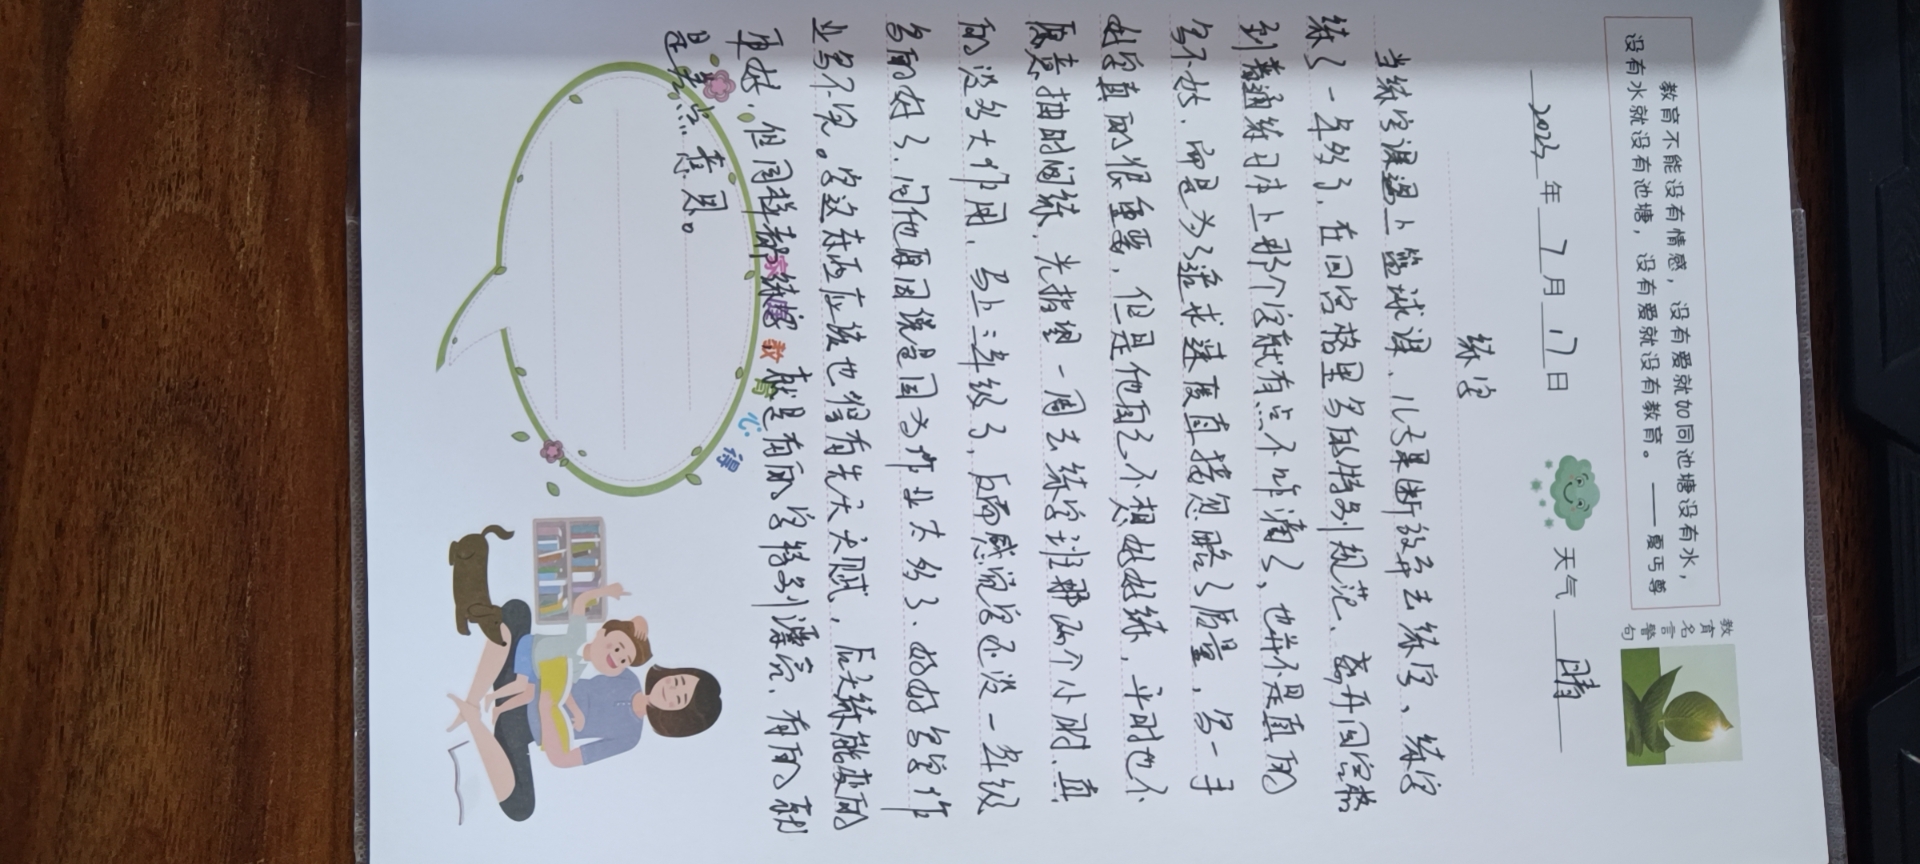 教育不能没有情感，没有爱就如同池塘没有水，
没有水就没有池塘，没有爱就没有教育。 ——夏丏尊
教育名言警句
2023年7月17日 天气 晴
练字
当练字课遇上篮球课、儿子果断放弃去练字、练字
练了一年多了，在回宫格里写的特别规范、离开回宫格
到普通练习本上那个字就有点不咋滴了、也并不是真的
写不好，而是为了追求速度直接忽略了质量，写一手
好字真的很重要，但是他自己不想好好练，平时也不
愿意抽时间练，光指望一周去练字班那两个小时、真
的没多大作用，马上三年级了，反而感觉字还没一年级
写的好了、问他原因说是因为作业太多了、好好写字作
业写不完。字这东西应该也得看先天天赋，后天练能变的
更好，但同样都练字 就是有的字特别漂亮、有的就
是差点意思。
家庭教育心得